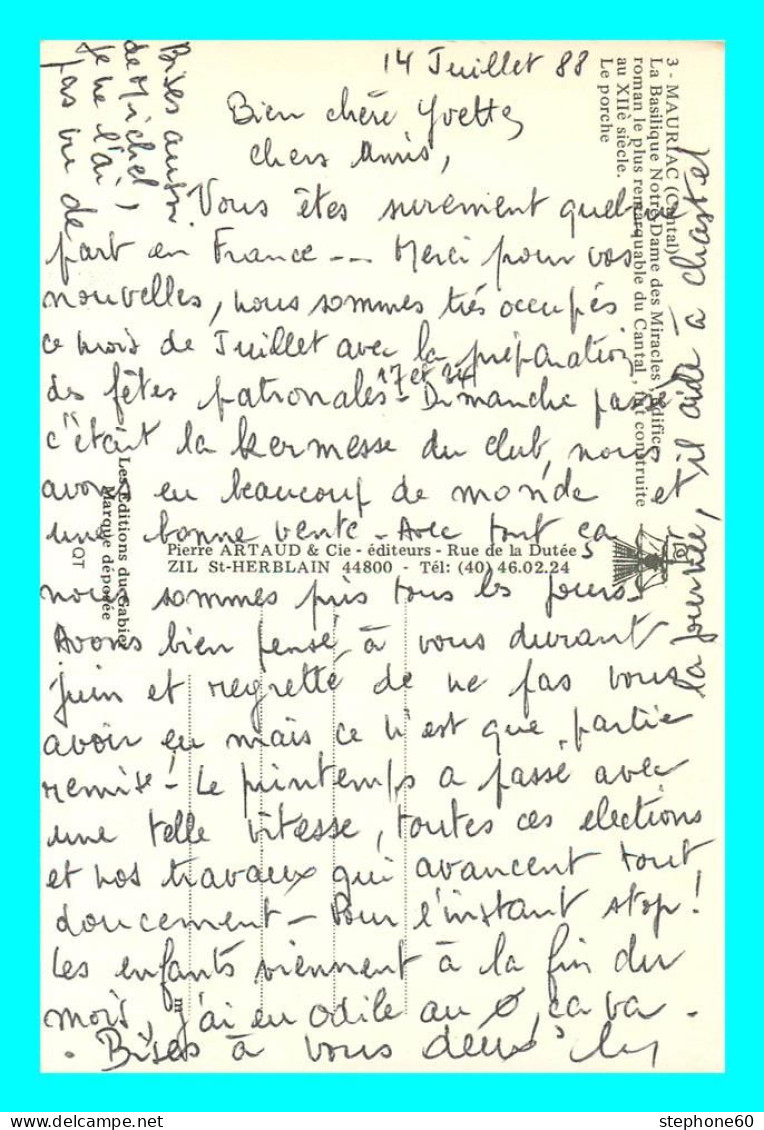 14 Juillet 88
Bien chère Yvette,
chers Amis,
Vous êtes surement quelque
part en France -- Merci pour vos
nouvelles, nous sommes très occupés
ce mois de Juillet avec la préparation
des fêtes patronales - 17 et 24 Dimanche passé
c'était la kermesse du club, nous
avons eu beaucoup de monde et
une bonne vente - Avec tout ça
nous sommes pris tous les jours.
Avons bien pensé à vous durant
juin et regretté de ne pas vous
avoir eu mais ce n'est que partie
remise! Le printemps a passé avec
une telle vitesse, toutes ces elections
et nos travaux qui avancent tout
doucement - Pour l'instant stop!
Les enfants viennent à la fin du
mois, j'ai eu Odile au Ø, ça va.
Bises à vous deux
Bises aussi
de Michel,
je ne l'ai
pas vu de
la journée, il aide à
3 - MAURIAC (Cantal)
La Basilique Notre Dame des Miracles, édifice
roman le plus remarquable du Cantal, fut construite
au XIIè siècle.
Le porche
Les Editions du Gabier
Marque déposée
QT
Pierre ARTAUD & Cie - éditeurs - Rue de la Dutée
ZIL St-HERBLAIN 44800 - Tél: (40) 46.02.24
stephone60